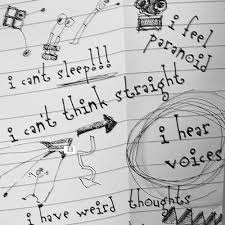 i feel
paranoid
i cant sleep!!!
i cant think straight
i hear
voices
i have weird thoughts